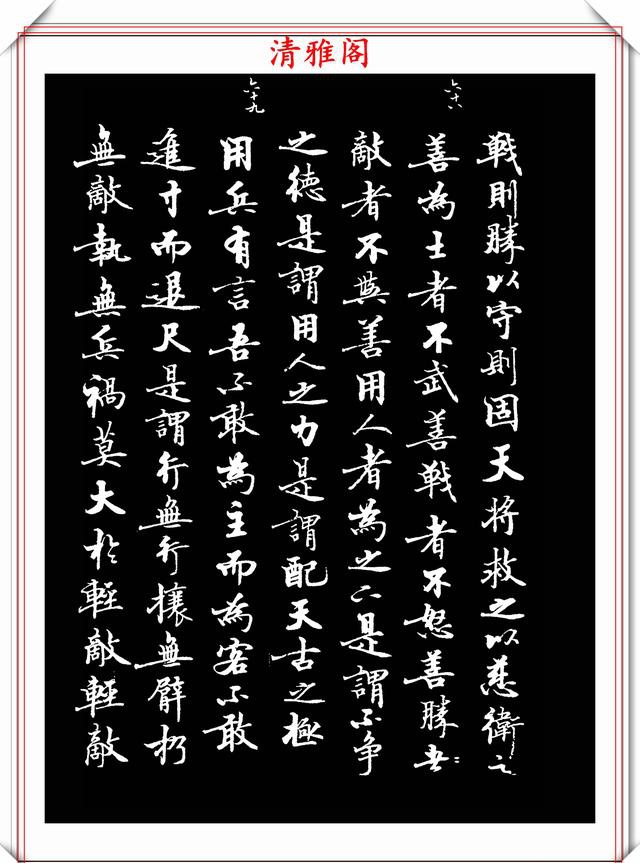 清雅阁
戰則勝以守則固天將救之以慈衛之
六十八
善為士者不武善戰者不怒善勝者
敵者不與善用人者為之下是謂不爭
之德是謂用人之力是謂配天古之極
六十九
用兵有言吾不敢為主而為客不敢
進寸而退尺是謂行無行攘無臂扔
無敵執無兵禍莫大於輕敵輕敵